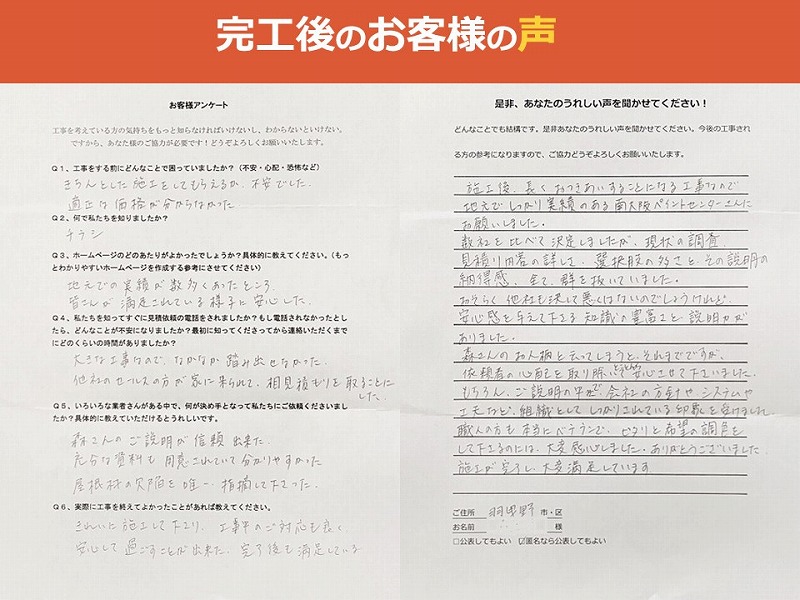 完工後のお客様の声
お客様アンケート
工事を考えている方の気持ちをもっと知らなければいけないし、わからないといけない。
ですから、あなた様のご協力が必要です！どうぞよろしくお願いいたします。
Q1、工事をする前にどんなことで困っていましたか？（不安・心配・恐怖など）
きちんとした施工をしてもらえるか、不安でした。
適正な価格が分からなかった。
Q2、何で私たちを知りましたか？
チラシ
Q3、ホームページのどのあたりがよかったでしょうか？具体的に教えてください。（もっ
とわかりやすいホームページを作成する参考にさせてください）
地元での実績が数多くあったところ
皆さんが満足されている様子に安心した。
Q4、私たちを知ってすぐに見積依頼の電話をされましたか？もし電話されなかったとし
たら、どんなことが不安になりましたか？最初に知ってくださってから連絡いただくまで
にどのくらいの時間がありましたか？
大きな工事なので、なかなか踏み出せなかった。
他社のセールスの方が家に来られて、相見積もりを取ることに
した。
Q5、いろいろな業者さんがある中で、何が決め手となって私たちにご依頼くださいまし
たか？具体的に教えていただけるとうれしいです。
森さんのご説明が信頼出来た。
充分な資料も用意されていて分かりやすかった
屋根材の欠陥を唯一指摘して下さった。
Q6、実際に工事を終えてよかったことがあれば教えてください。
きれいに施工して下さり、工事中のご対応も良く、
安心して過ごすことが出来た。完了後も満足している
是非、あなたのうれしい声を聞かせてください！
どんなことでも結構です。是非あなたのうれしい声を聞かせてください。今後の工事され
る方の参考になりますので、ご協力どうぞよろしくお願いいたします。
施工後、長くおつきあいすることになる工事なので
地元でしっかり実績のある南大阪ペイントセンターさんに
お願いしました。
数社を比べて決定しましたが、現状の調査、
見積り内容の詳しさ、選択肢の多さと、その説明の
納得感、全て、群を抜いていました。
おそらく他社も決して悪くはないのでしょうけれど、
安心感を与えて下さる知識の豊富さと、説明力が
ありました。
森さんのお人柄と云ってしまうと、それまでですが、
依頼者の心配を取り除き安心させて下さいました。
もちろん、ご説明の中で、会社の方針や、システムや
工夫など、組織としてしっかりされている印象を受けました。
職人の方も本当にベテランで、ピタリと希望の調色を
して下さるのには、大変感心しました。ありがとうございました。
施工が完了し、大変満足しています
ご住所 羽曳野 市・区
お名前 様
□公表してもよい ☑匿名なら公表してもよい